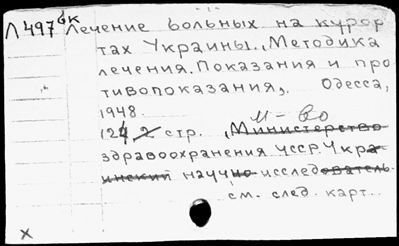 Л497 бк Лечение больных на курор
тах Украины., Методика
лечения. Показания и про
тивопоказания,. Одесса,
1948.
м-во
124 2 стр. , Министерство
здравоохранения УССР. Укра-
инский научно-исследователь.
см. след. карт..
х